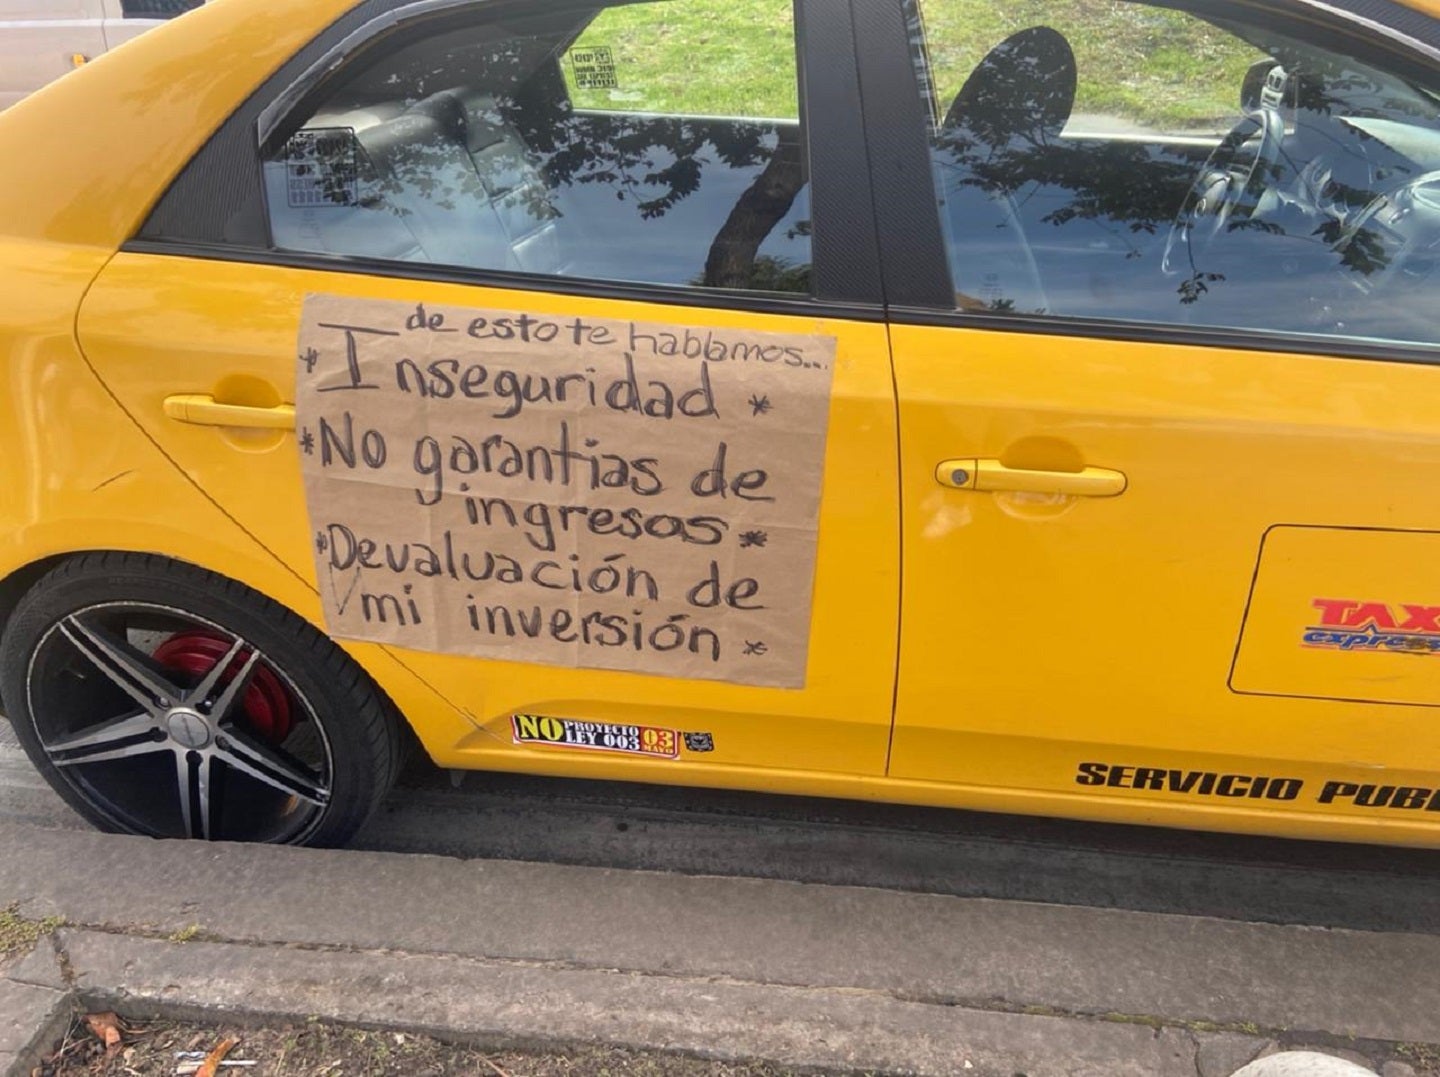 de esto te hablamos...
* Inseguridad *
* No garantias de
ingresos *
* Devaluación de
mi inversión *
NO PROYECTO
LEY 003
03
MAYO
TAX
expres
SERVICIO PUB